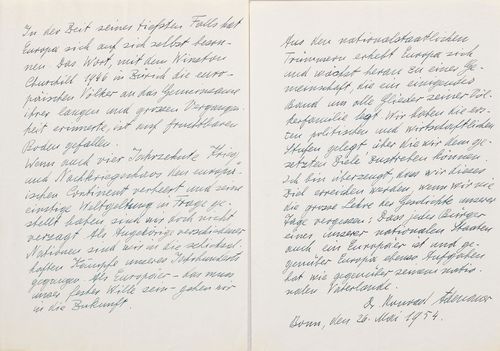 In der Zeit seines tiefsten Falls hat
Europa sich auf sich selbst beson-
nen. Das Wort, mit dem Winston
Churchill 1946 in Zürich die euro-
päischen Völker an das Gemeinsame
ihrer langen und grossen Vergangen-
heit erinnerte, ist auf fruchtbaren
Boden gefallen.
Wenn auch vier Jahrzehnte Krieg
und Nachkriegschaos den europä-
ischen Continent verheert und seine
einstige Weltgeltung in Frage ge-
stellt haben sind wir doch nicht
verzagt. Als Angehörige verschiedener
Nationen sind wir in die schicksal-
haften Kämpfe unseres Jahrhunderts
gegangen. Als Europäer – das muss
unser fester Wille sein – gehen wir
in die Zukunft.
Aus den nationalstaatlichen
Trümmern erhebt Europa sich
und wächst heran zu einer Ge-
meinschaft, die ein einigendes
Band um alle Glieder seiner Völ-
kerfamilie legt. Wir haben die ers-
ten politischen und wirtschaftlichen
Stufen gelegt über die wir dem ge-
setzten Ziele zustreben können.
Ich bin überzeugt, dass wir dieses
Ziel erreichen werden, wenn wir nie
die grosse Lehre der Geschichte unserer
Tage vergessen: Dass jeder Bürger
eines unserer nationalen Staaten
auch ein Europäer ist und ge-
genüber Europa ebenso Aufgaben
hat wie gegenüber seinem natio-
nalen Vaterlande.
Dr. Konrad Adenauer
Bonn, den 26. Mai 1954.